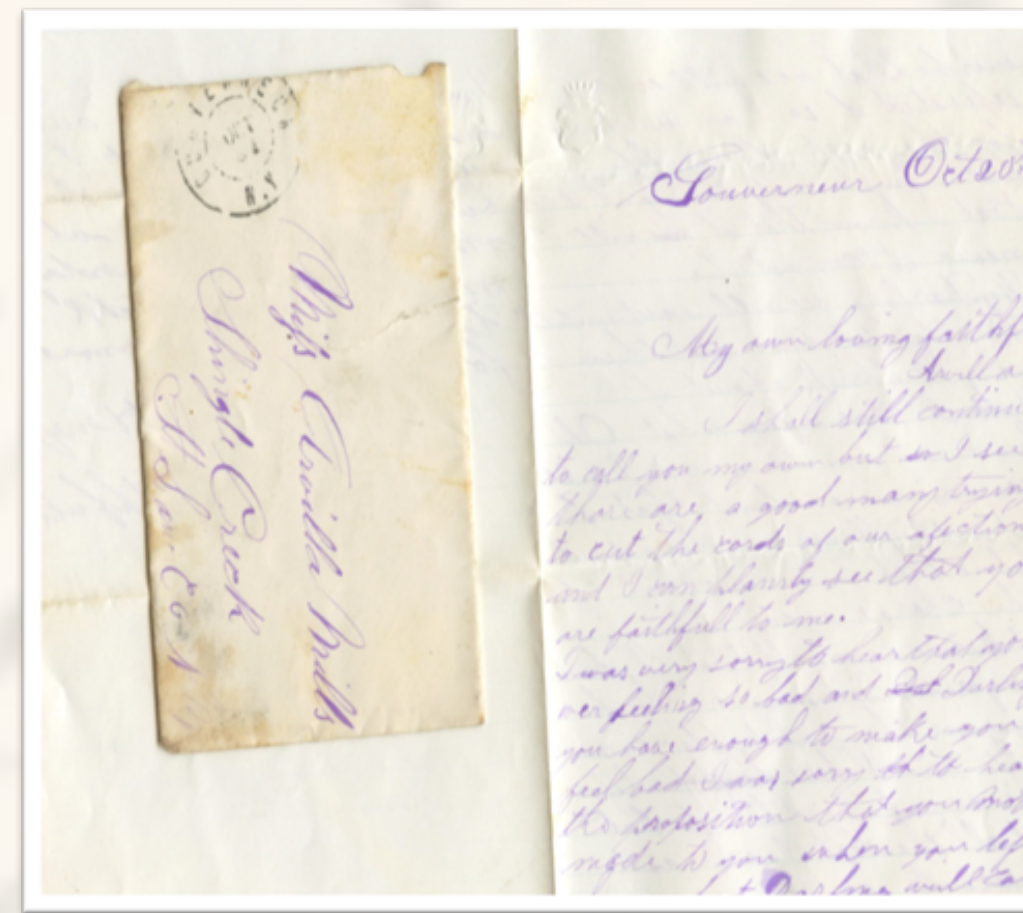 OCT
N.Y
Miss Arvilla Mills
Shingle Creek
St Law Co N Y
Gouverneur Oct 20
My own loving faithf
Arvilla
I shall still continu
to call you my own but as I see
thare are a good many trying
to cut the cords of our afection
and I can plainly see that yo
are faithfull to me.
I was very sorry to hear that yo
wer feeling so bad and Darling
you have enough to make you
feel bad I was sorry to hea
the proposition that you
made to you when you lef
Darling will